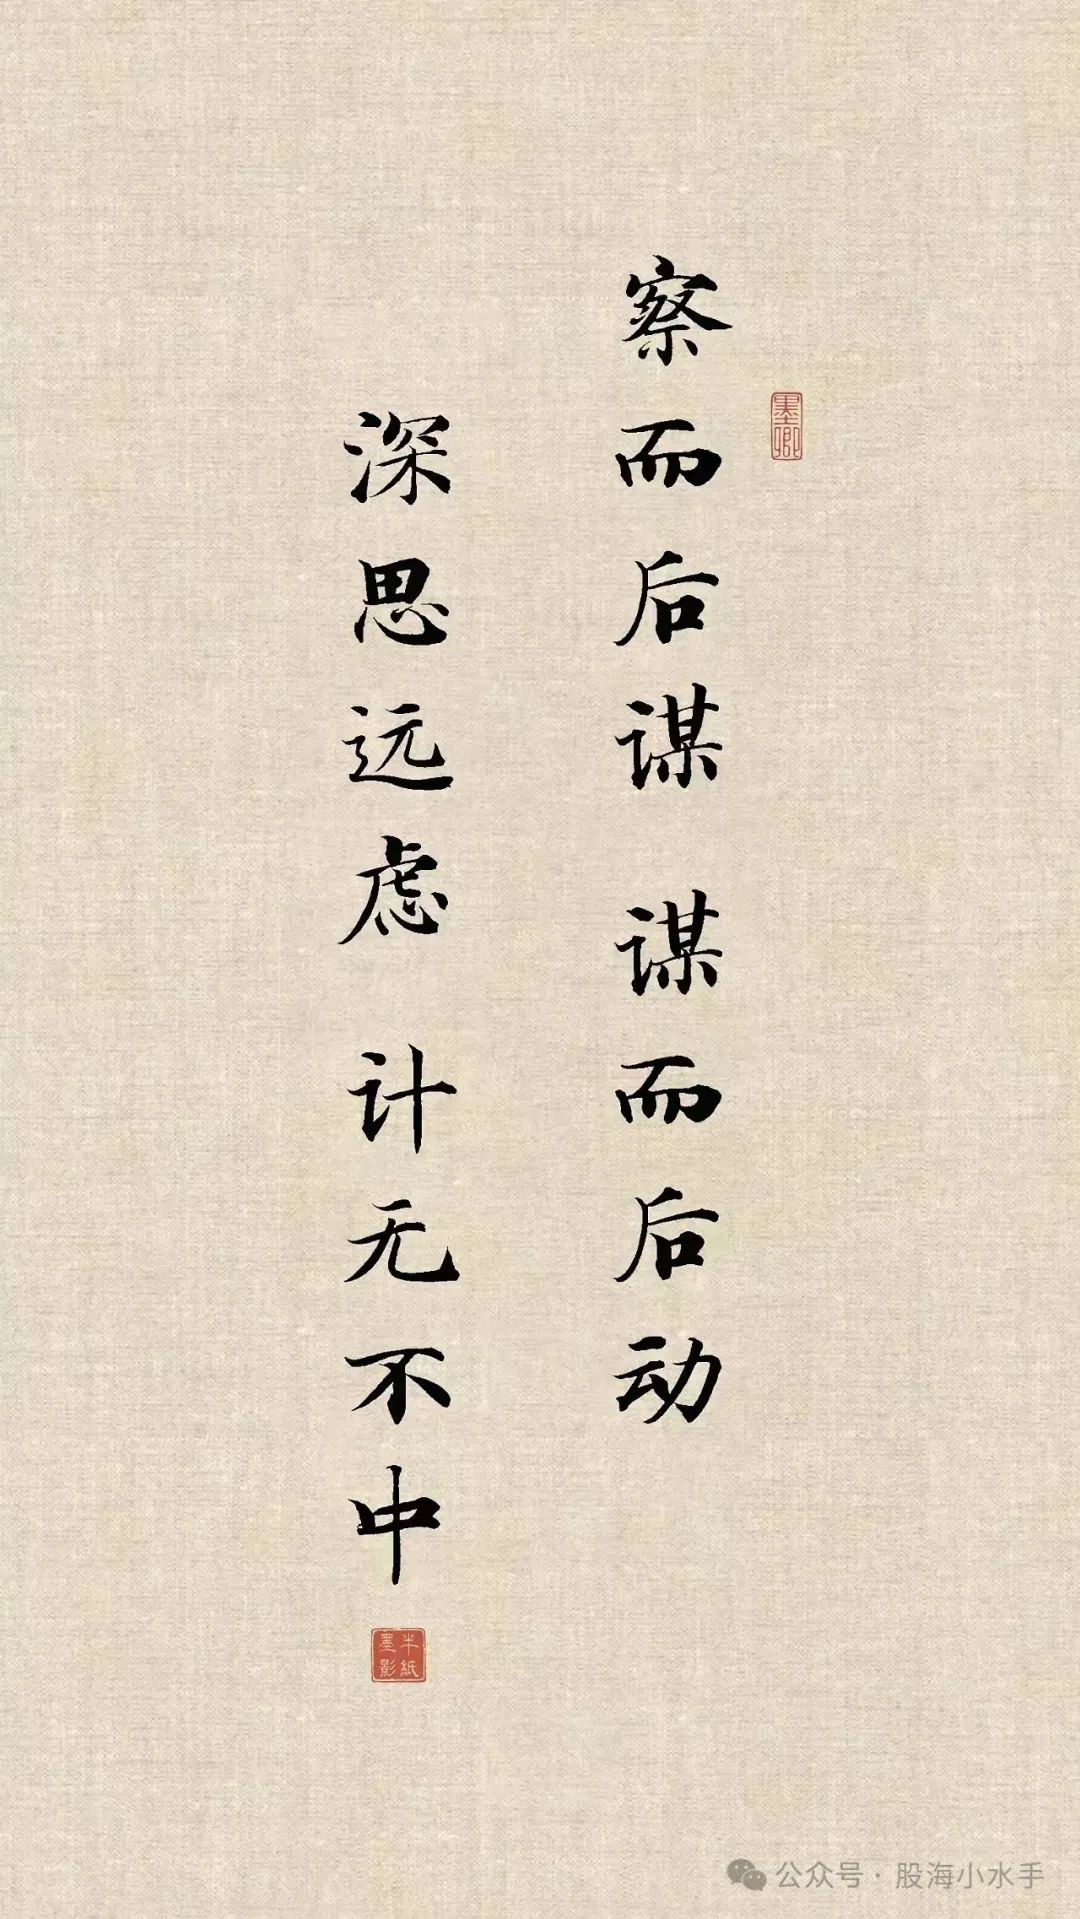 察而后谋 谋而后动
深思远虑 计无不中
墨卿
半紙墨影
公众号 · 股海小水手